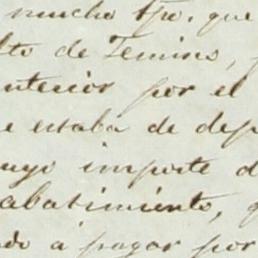 mucho tpo. que
lto de Temins,
anterior por el
e estaba de dep
uyo importe d
abatimiento, q
ndo a pagar por